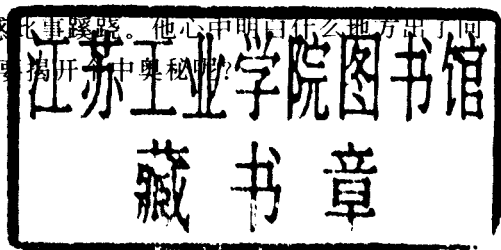 感此事蹊跷。他心中明白什么地方出了问
要揭开个中奥秘呢？
江苏工业学院图书馆
藏书章